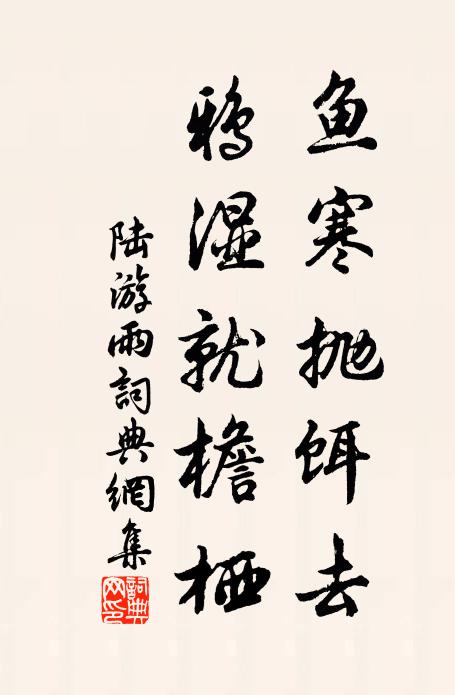 鱼寒抛饵去
鸦湿就檐栖
陆游雨詞典網集
詞典網印